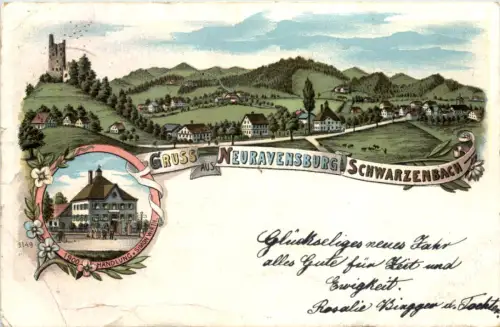 GRUSS AUS NEURAVENSBURG SCHWARZENBACH
HANDLUNG
3149
Glückseliges neues Jahr
alles Gute für Zeit und
Ewigkeit.
Rosalie u. Tochter